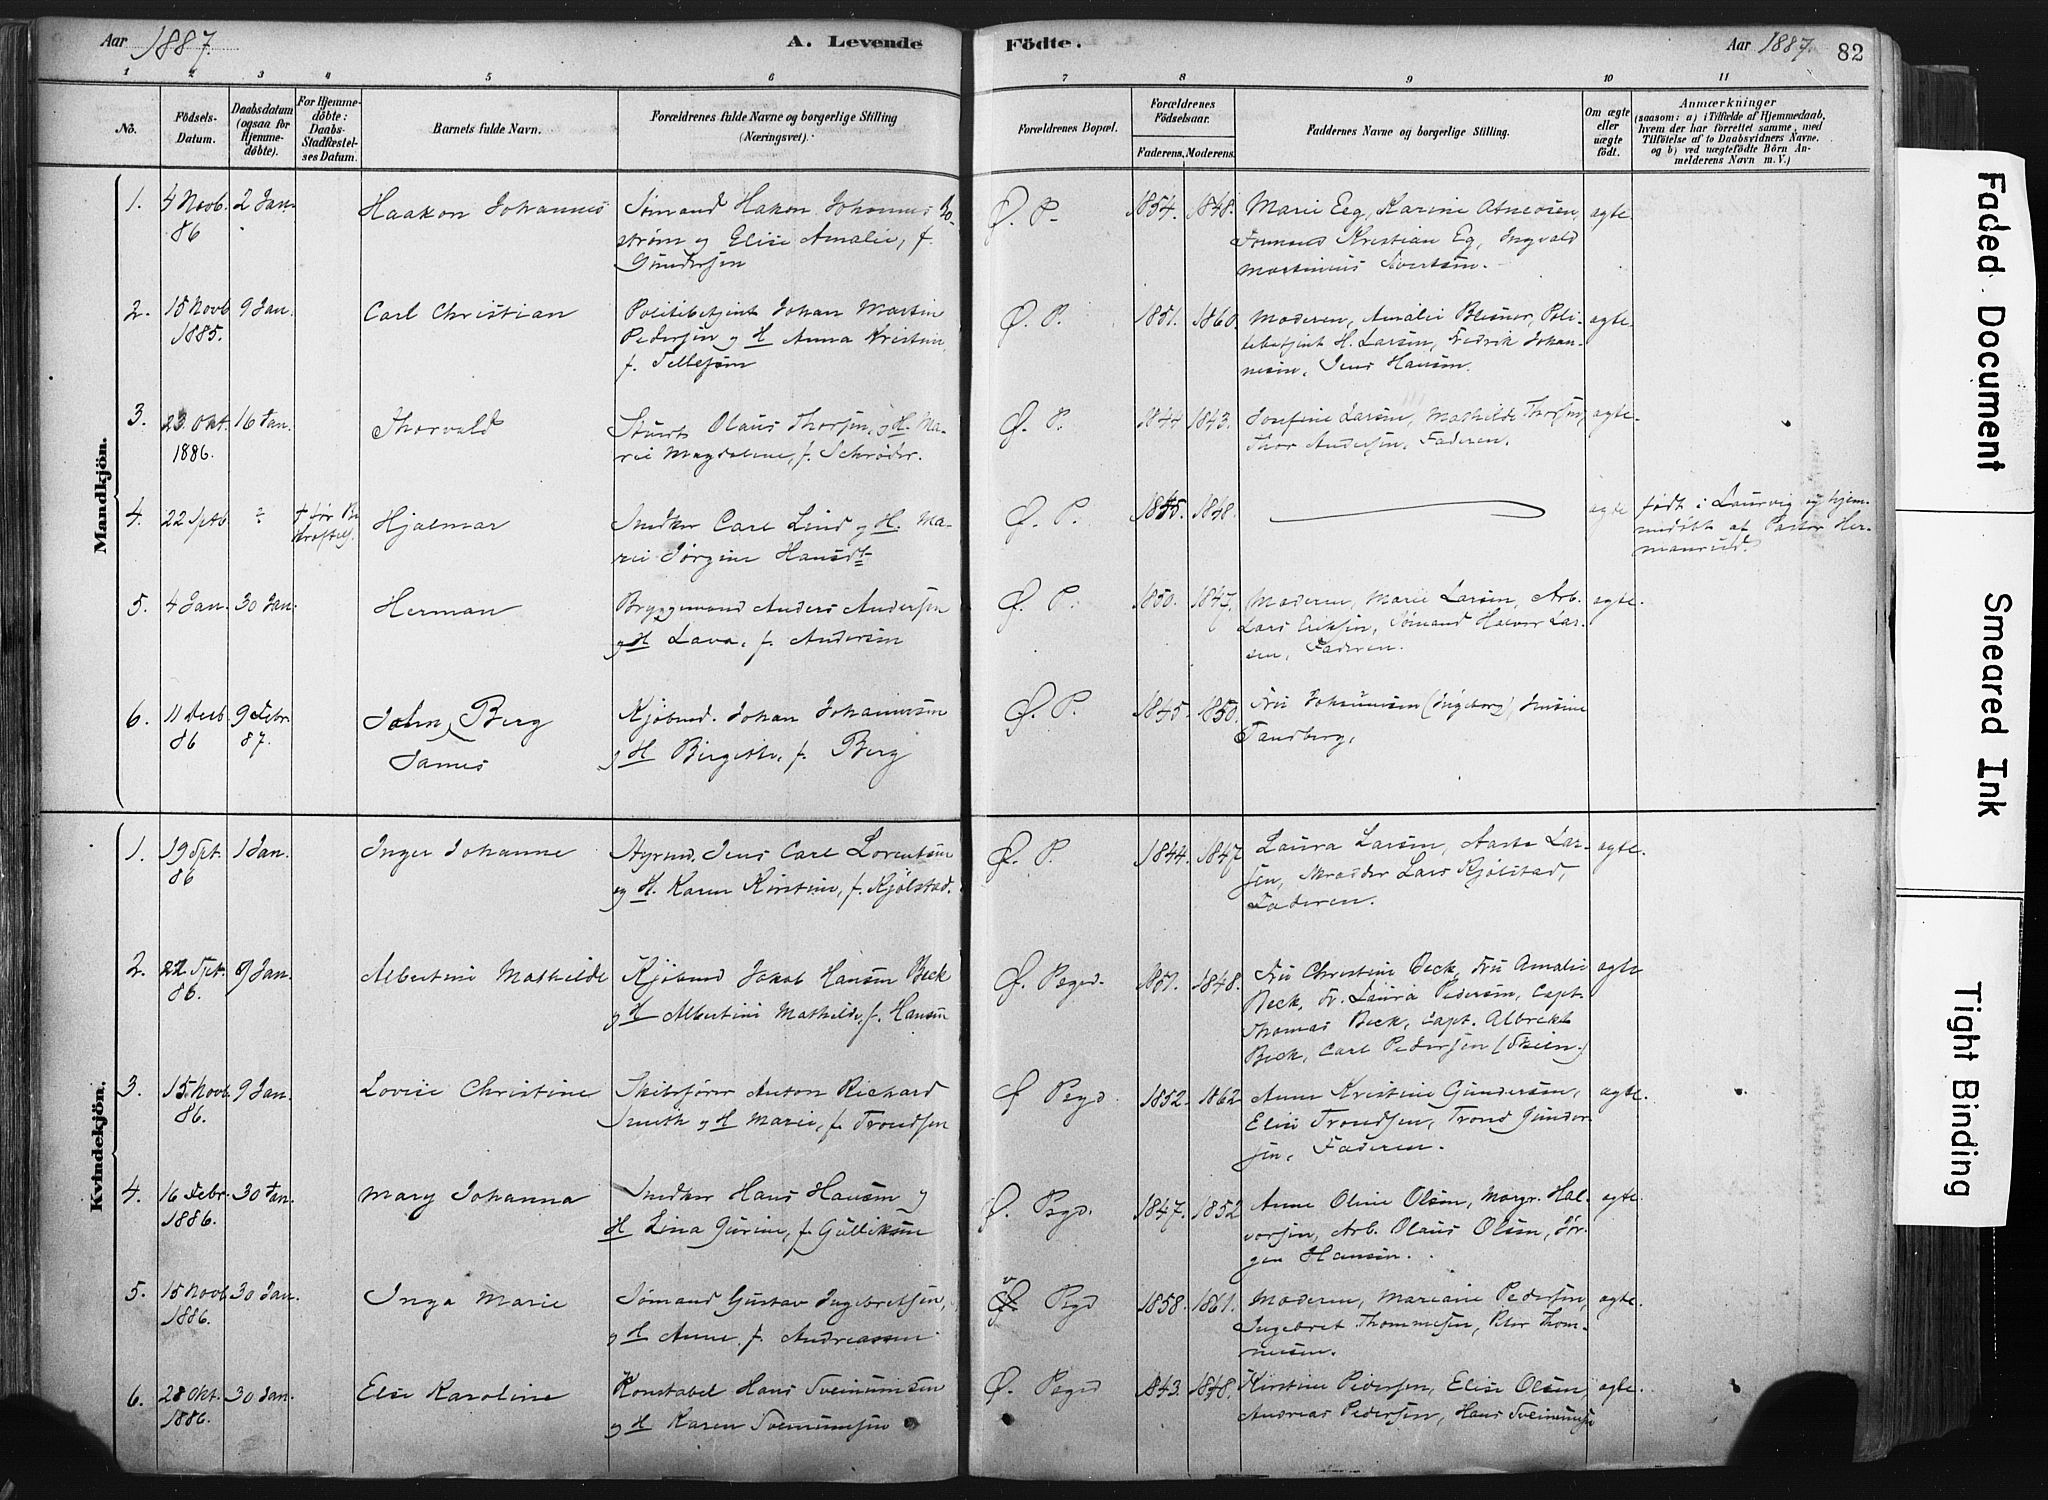 Aar 1887.
A. Levende
Födte.
Aar 1887.
82
1 2 3 4 5 6 7 8 9 10 11
No.
Födsels-Datum.
Daabsdatum (ogsaa for Hjemme-döbte).
For Hjemme-döbte: Daabs-Stadfæstel-ses Datum.
Barnets fulde Navn.
Forældrenes fulde Navne og borgerlige Stilling (Næringsvei).
Forældrenes Bopæl.
Forældrenes Födselsaar.
Faderens. Moderens.
Faddernes Navne og borgerlig Stilling.
Om ægte eller uægte födt.
Anmærkninger
(saasom: a) i Tilfælde af Hjemmedaab,
hvem der har forrettet samme, med
Tilföielse af to Daabsvidners Navne,
og b) ved uægtefödte Börn An-
melderens Navn m. V.)
Mandkjön.
1. 4 Novb. 86 2 Jan. Haakon Johannes Sømand Hakon Johannes Bo-
strøm og Elise Amalie, f.
Gundersen
Ø. P. 1854. 1848. Marie Eeg, Karine
Kristian Eg, Ingvald
Martinius
ægte
2. 15 Novb 1885. 9 Jan. Carl Christian Politibetjent Johan Martin
Pedersen og H Anna Kristine
f. Tellefsen
Ø. P. 1851. 1860. Moderen, Amalie Poli-
tibetjent H. Larsen, Fredrik Johan-
nesen, Jens Hansen.
ægte.
3. 23. Okt. 1886. 16 Jan. Thorvald Stuert Olaus Thorsen, og H. Ma-
rie Magdalene, f. Schrøder.
Ø. P. 1844 1843. Josefine Larsen, Mathilde Thorsen,
Thor Andersen, Faderen.
ægte.
4. 22 Sptb " † før Be
kræftels. Hjalmar Snedker Carl Lind og H. Ma-
rie Jørgine Hansdt
Ø. P. 1845. 1848. ægte
født i Laurvig og hjem-
medøbt af Pastor Her-
manrud.
5. 4 Jan. 30 Jan. Herman Bryggemand Anders Andersen
og H Lava, f. Andersen
Ø. P. 1850. 1847. Moderen, Marie Larsen, Arb.
Lars Eriksen, Sømand Halvor Lar-
sen, Faderen.
ægte.
6. 11 Decb. 86 9 Febr. 87. John Berg
James
Kjøbmd. Johan Johannesen
og H Birgitte, f. Berg
Ø. P. 1845. 1850. Fru Johannesen (Ingeborg)
Tandberg.
Kvindekjön.
1. 19 Spt. 86 1 Jan. Inger Johanne Styrmd. Jens Carl Lorentsen
og H. Karen Kirstine, f. Kjølstad.
Ø. P. 1844. 1847 Laura Larsen, Aaste Lar-
sen, Skrædder Lars Kjølstad,
Faderen.
ægte.
2. 22 Spt. 86. 9 Jan. Albertine Mathilde Kjøbmd Jakob Hansen Beck
og H Albertine Mathilde, f. Hansen
Ø. Psgd. 1851. 1848. Fru Christine Beck, Fru Amalie
Beck, Fr. Laura Pedersen, Capt.
Thomas Beck, Capt. Albrekt
Beck, Carl Pedersen (Skien.)
ægte
3. 15. Novb. 86. 9 Jan. Lovise Christine Skibsfører Anton Richard
Smith og H Marie, f. Trondsen
Ø Psgd. 1852. 1862 Anne Kristine Gundersen,
Elise Trondsen, Trond Gunder-
sen, Faderen.
ægte.
4. 16 Febr. 1886. 30 Jan. Mary Johanna Snedker Hans Hansen og
H Lina Gurine, f. Gulliksen
Ø. Psgd. 1847. 1852 Anne Oline Olsen, Margr. Hal-
vorsen, Arb. Olaus Olsen, Jør-
gen Hansen.
ægte
5. 15 Novb. 1886. 30 Jan. Inga Marie Sømand Gustav Ingebretsen,
og H Anne, f. Andreassen
Ø. Psgd 1858. 1861. Moderen, Mariane Pedersen,
Ingebret Thommesen, Peter Thom-
mesen.
ægte.
6. 28 Okt. 1886. 30 Jan. Else Karoline Konstabel Hans Sveinumsen
og H Karen Sveinumsen
Ø. Psgd 1843. 1848. Kirstine Pedersen, Elise Olsen
Andreas Pedersen, Hans Sveinumsen
ægte.
Faded Document
Smeared Ink
Tight Binding